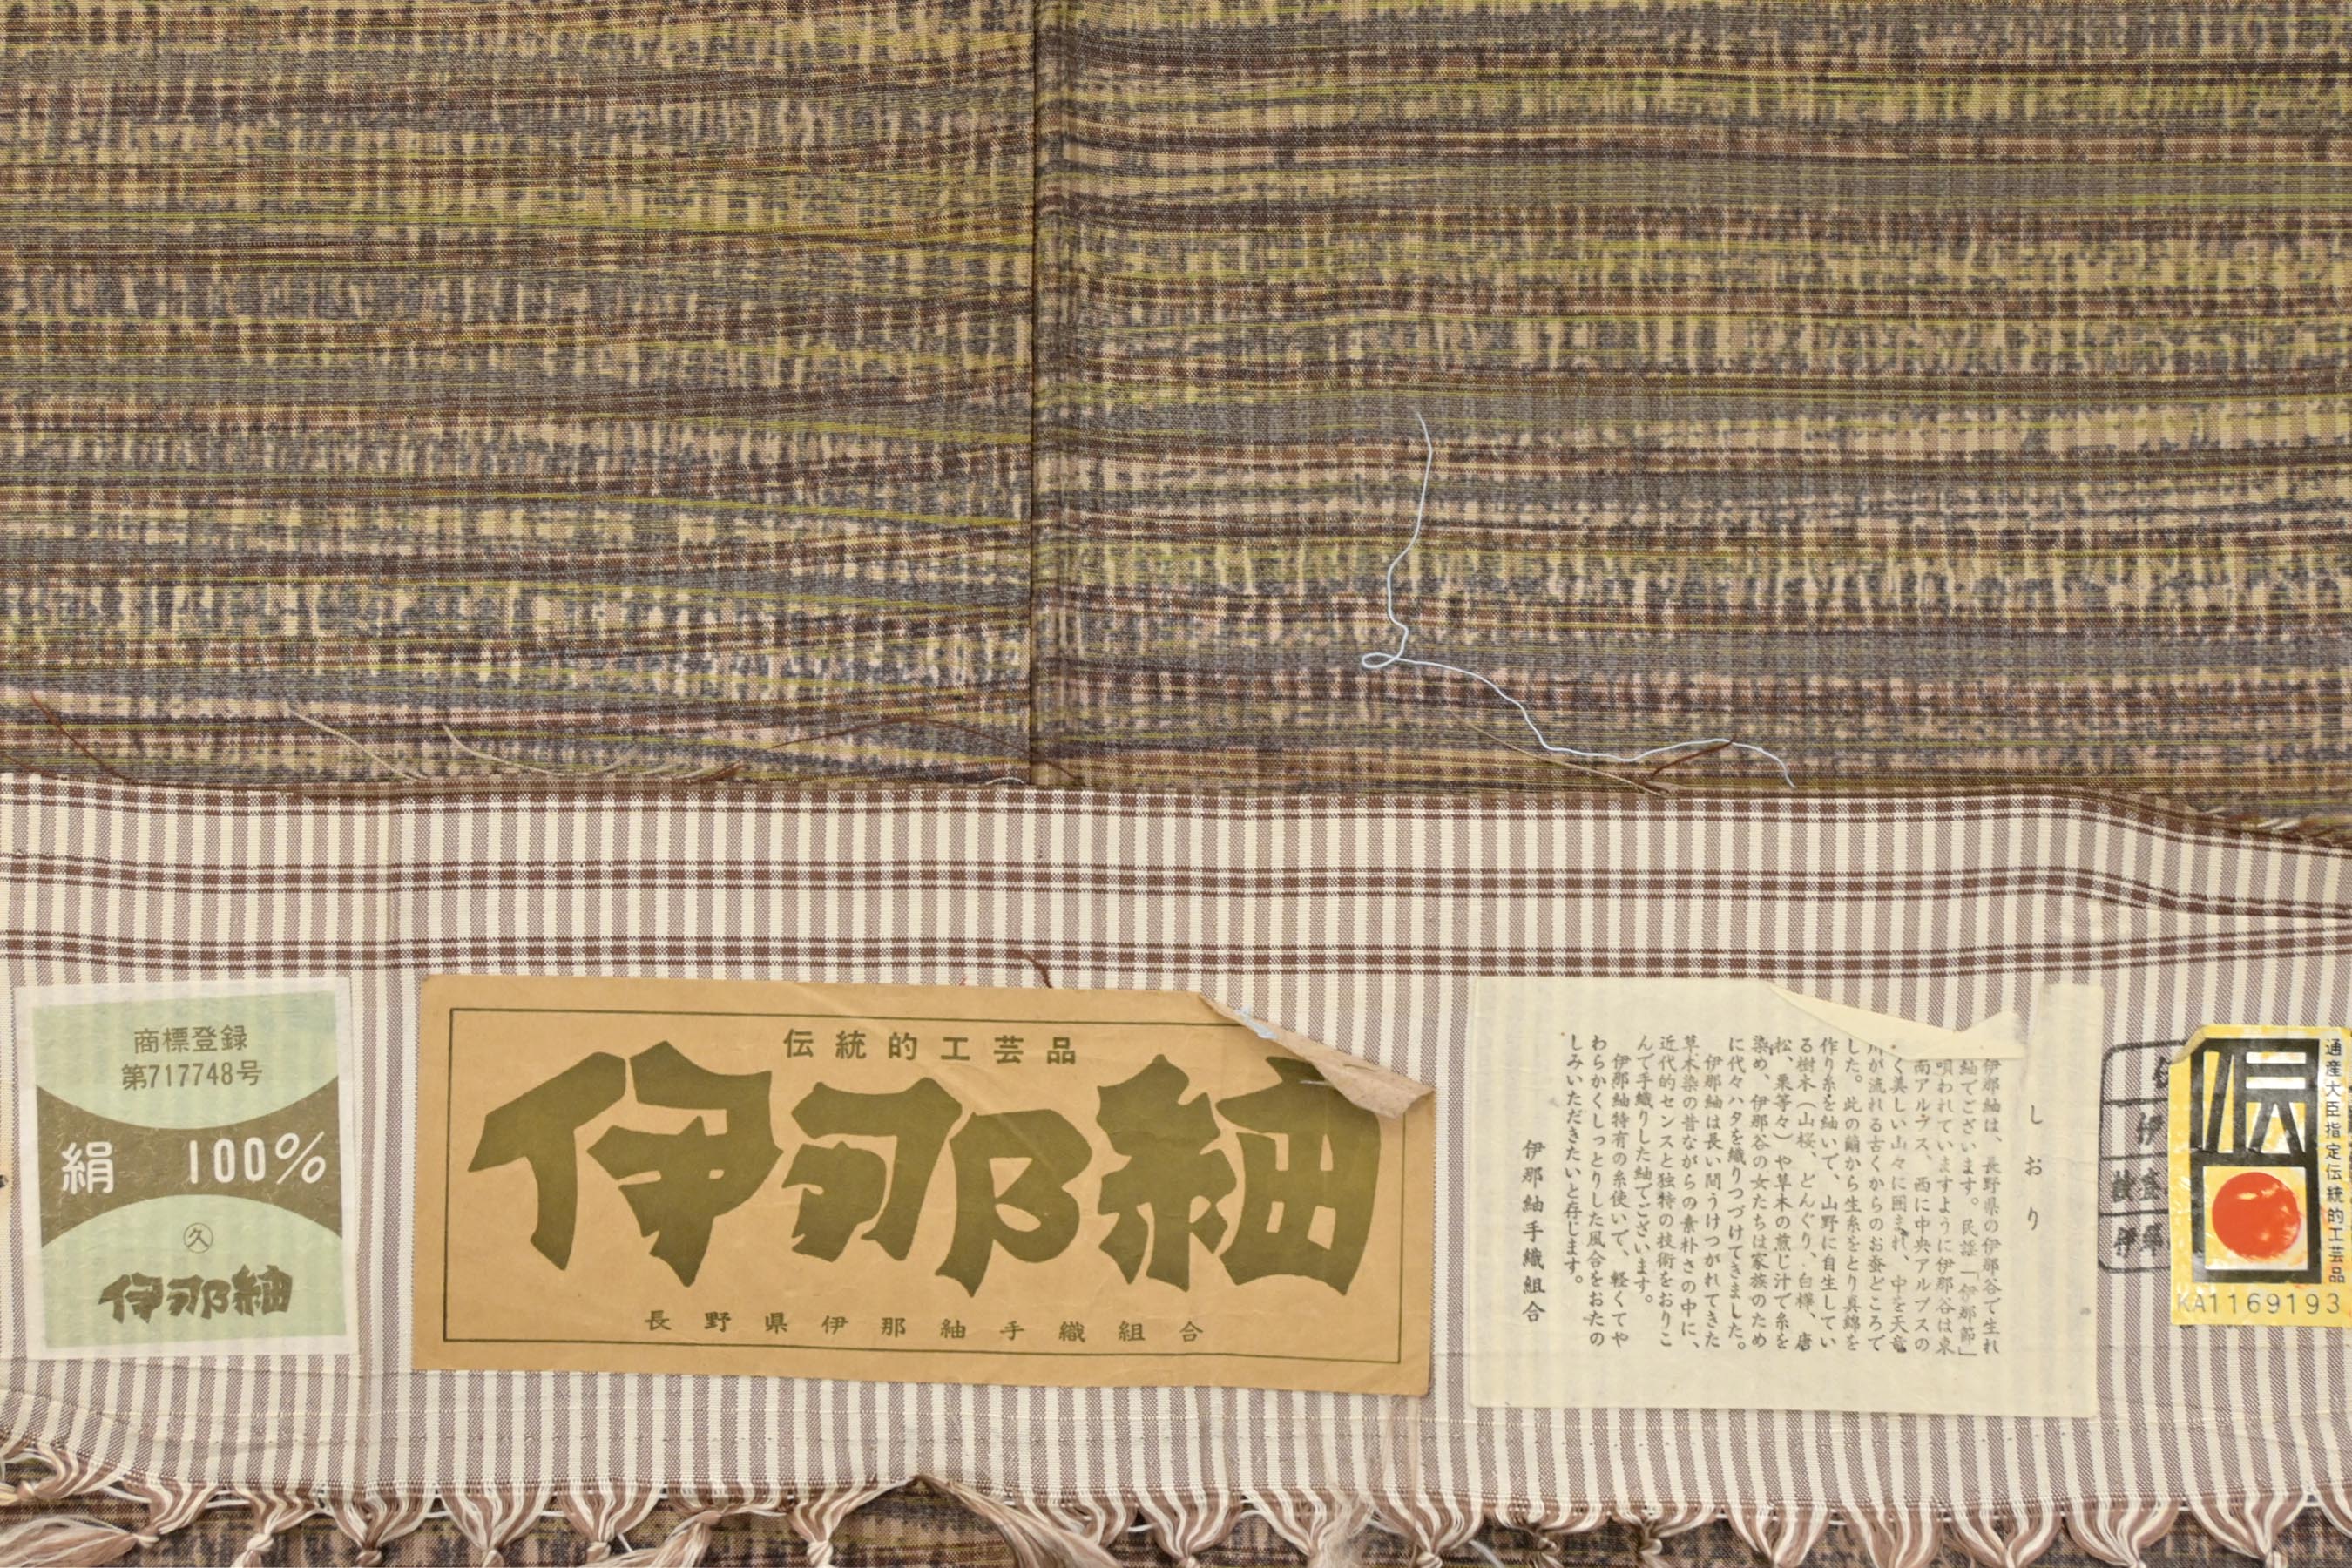 商標登録
第717748号
絹 100%
久
伊那紬
伝統的工芸品
伊那紬
長野県伊那紬手織組合
しおり
伊那紬は、長野県の伊那谷で生れ
紬でございます。民謡「伊那節」
唄われていますように伊那谷は東
南アルプス、西に中央アルプスの
く美しい山々に囲まれ、中を天竜
川が流れる古くからのお蚕どころで
した。此の繭から生糸をとり真綿を
作り糸を紬いで、山野に自生してい
る樹木(山桜、どんぐり、白樺、唐
松、栗等々)や草木の煎じ汁で糸を
染め、伊那谷の女たちは家族のため
に代々ハタを織りつづけてきました。
伊那紬は長い間うけつがれてきた
草木染の昔ながらの素朴さの中に、
近代的センスと独特の技術をおりこ
んで手織りした紬でございます。
伊那紬特有の糸使いで、軽くてや
わらかくしっとりした風合をおたの
しみいただきたいと存じます。
伊那紬手織組合
伝
通産大臣指定伝統的工芸品
KA1169193